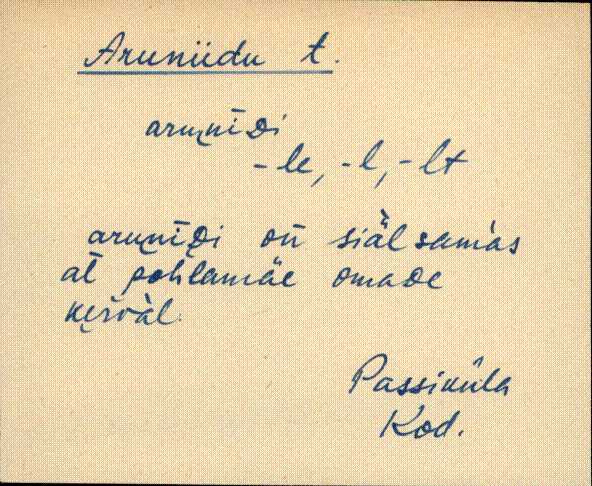 Aruniidu t.
aruni̮ī̮di
-le, -l, -lt
arunīdi oń siälsamas
at pohlamäe omade
kerväl.
Passiküla
Kod.